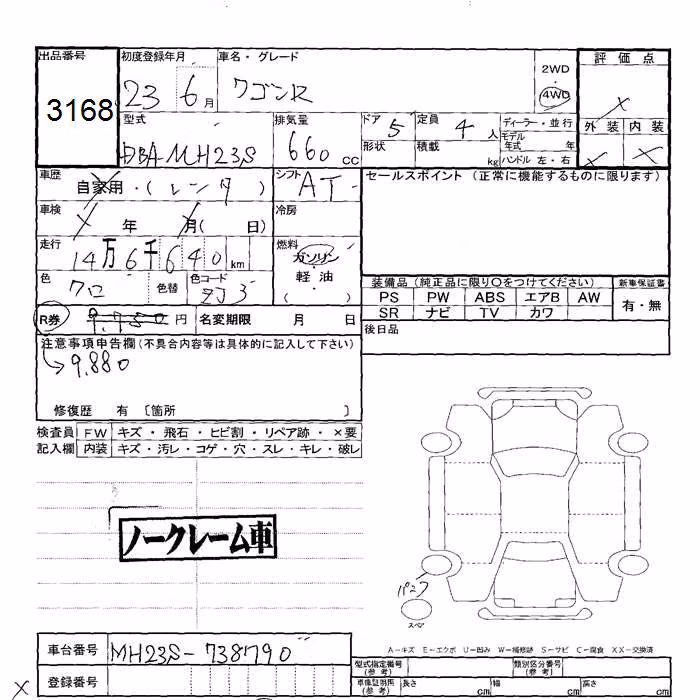 出品番号
3168
初度登録年月
23 6月
車名・グレード
ワゴンR
2WD
4WD
評価点
X
外装 内装
X X
型式
DBA-MH23S
排気量
660 cc
ドア 5
形状
定員 4人
積載 kg
ディーラー・並行
モデル年式 年
ハンドル 左・右
車歴
自家用・(レンタ)
シフト
AT
セールスポイント (正常に機能するものに限ります)
車検
年 月( 日)
冷房
走行
14万6千640km
燃料
ガソリン
軽油
( )
色
クロ
色替
色コード
ZJ3
装備品 (純正品に限り○をつけてください) 新車保証書
PS PW ABS エアB AW 有・無
SR ナビ TV カワ
R券 9.750円 名変期限 月 日
後日品
注意事項申告欄(不具合内容等は具体的に記入して下さい)
9.880
修復歴 有 〔箇所 〕
検査員 FW キズ・飛石・ヒビ割・リペア跡・×要
記入欄 内装 キズ・汚レ・コゲ・穴・スレ・キレ・破レ
ノークレーム車
パンク
スペア
A-キズ E-エクボ U-凹み W-補修跡 S-サビ C-腐食 XX-交換済
車台番号 MH23S-738790
登録番号
型式指定番号(参考) 類別区分番号(参考)
車庫証明用(参考) 長さ cm 幅 cm 高さ cm
X